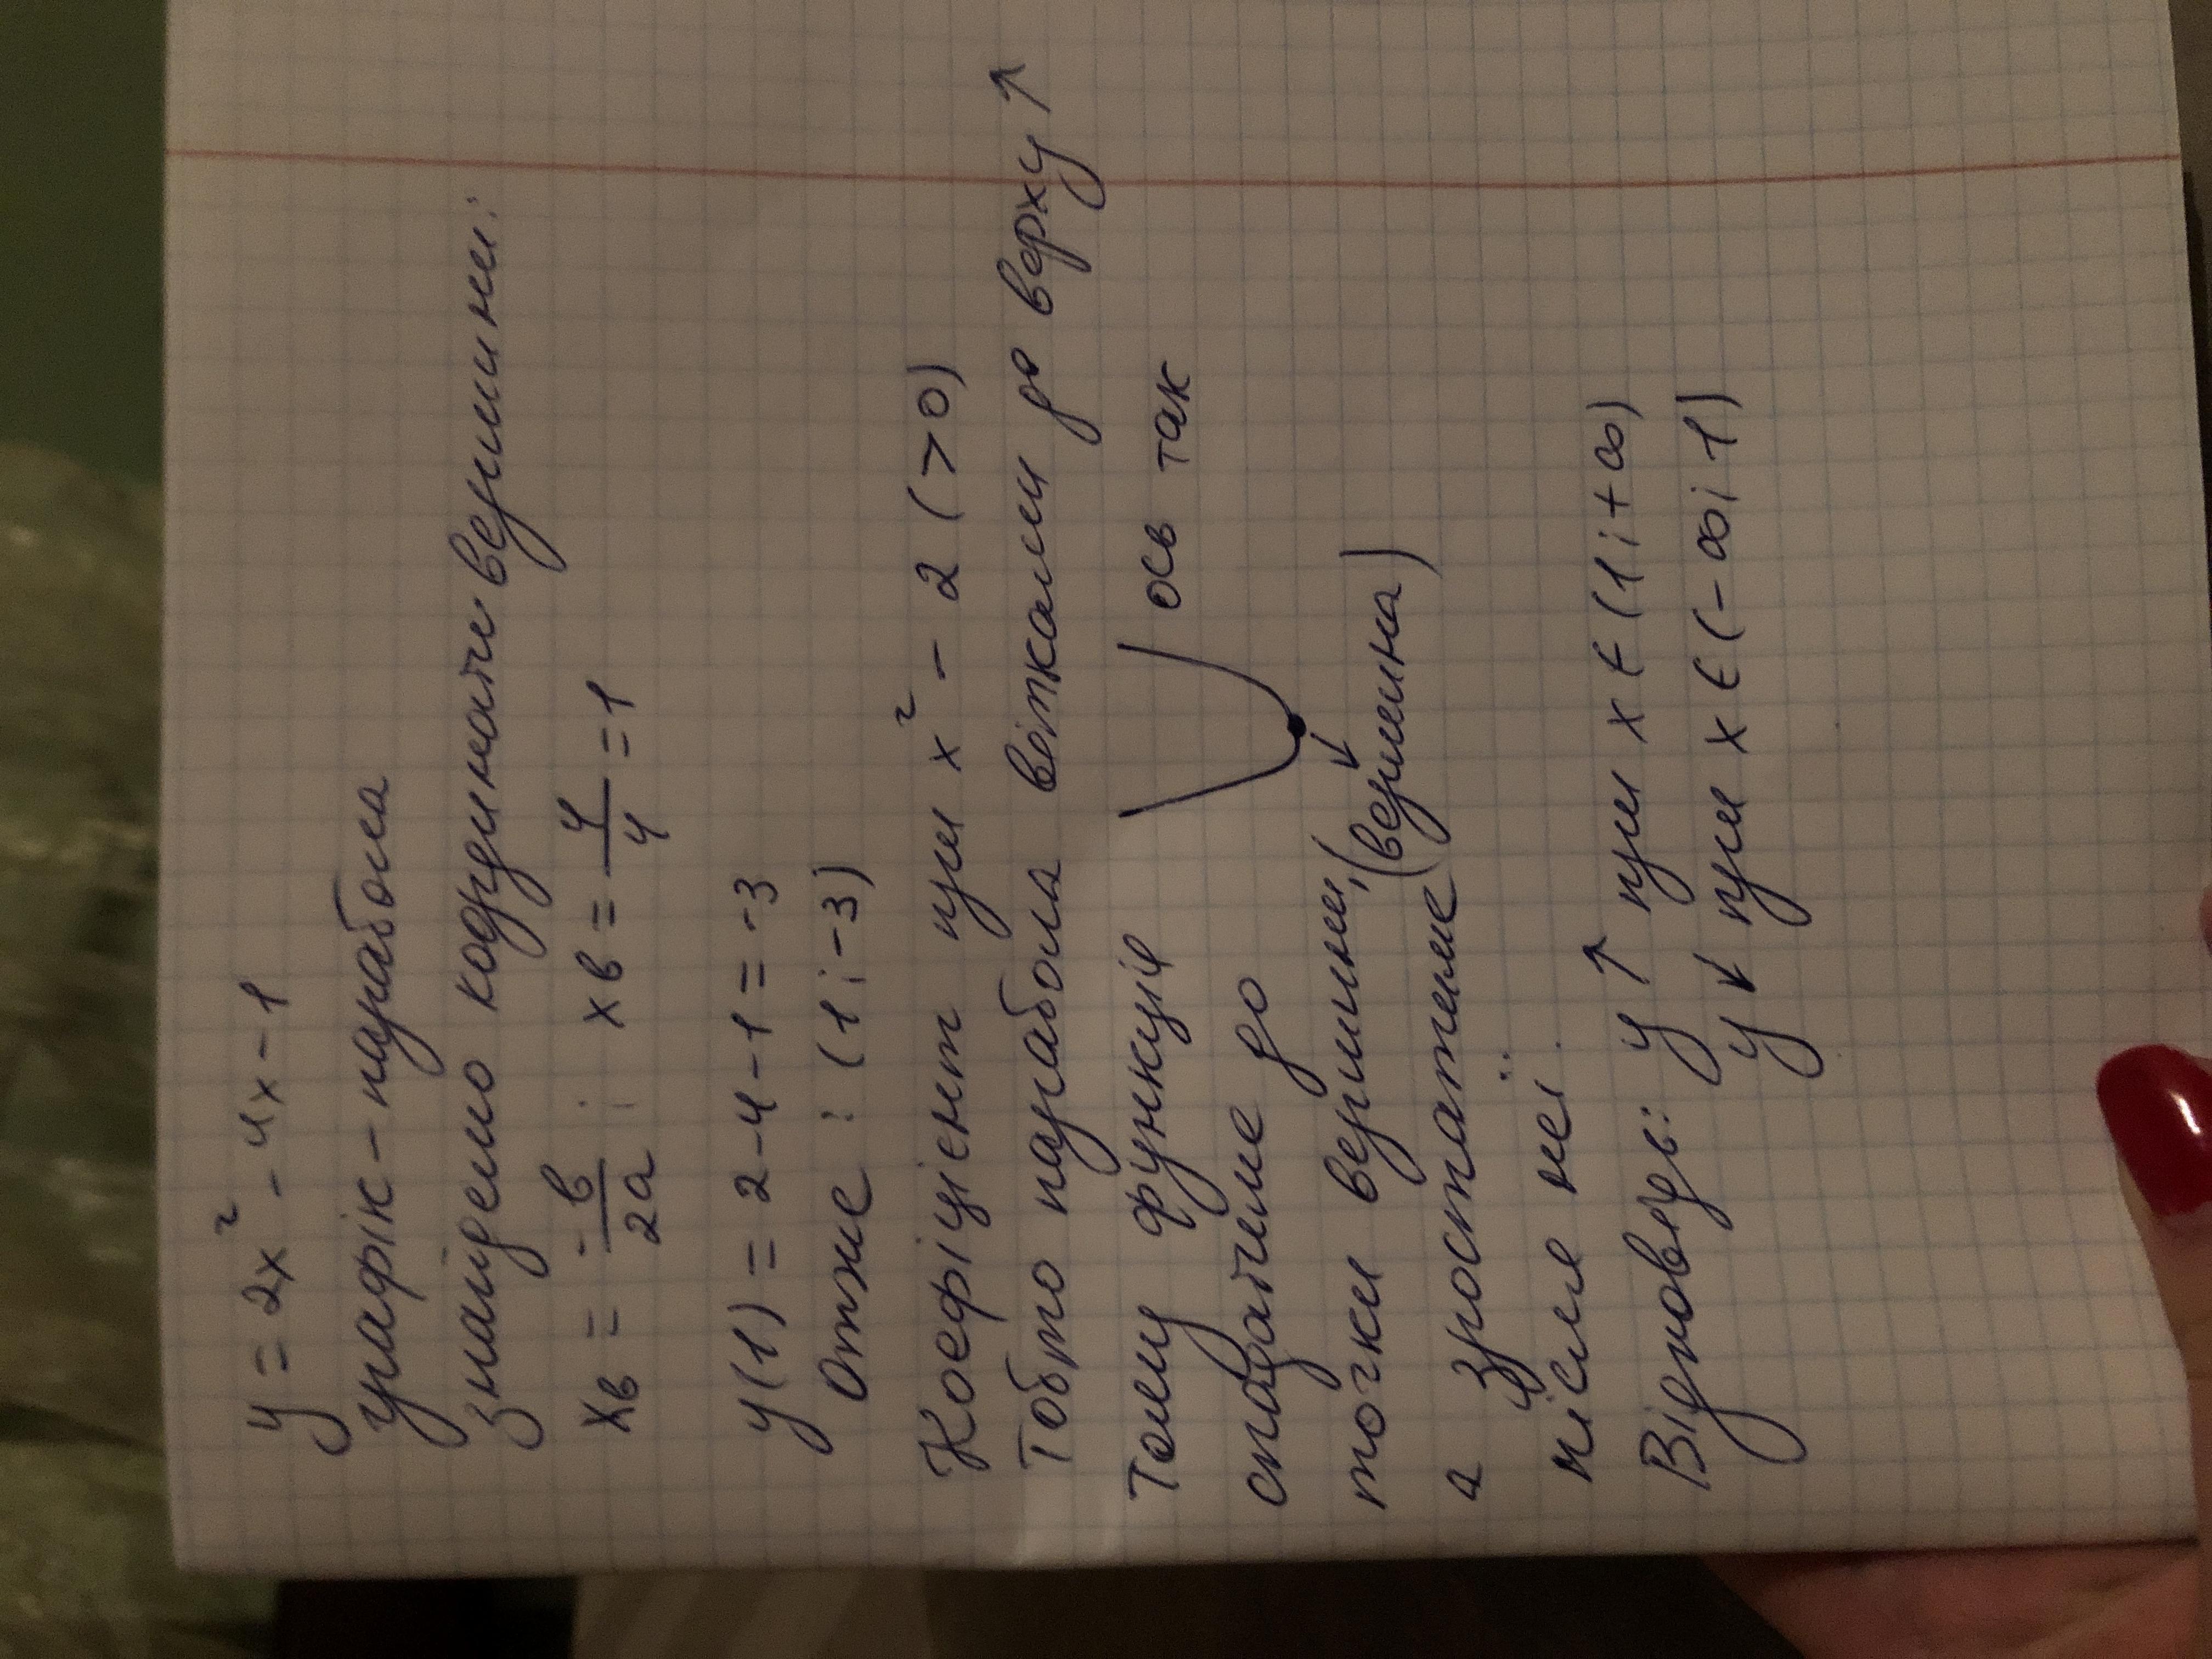 y = 2x² - 4x - 1
графік - парабола
знайдемо координати вершини:
xв = -в/2a ; xв = 4/4 = 1
y(1) = 2 - 4 - 1 = -3
Отже : (1; -3)
Коефіцієнт при x² - 2 (>0)
Тобто парабола вітками до верху ↑
Тому функція ось так
спадатиме до
точки вершини, (вершина)
а зростатиме
після неї.
Відповідь: y ↑ при x ∈ (1; +∞)
y ↓ при x ∈ (-∞; 1)